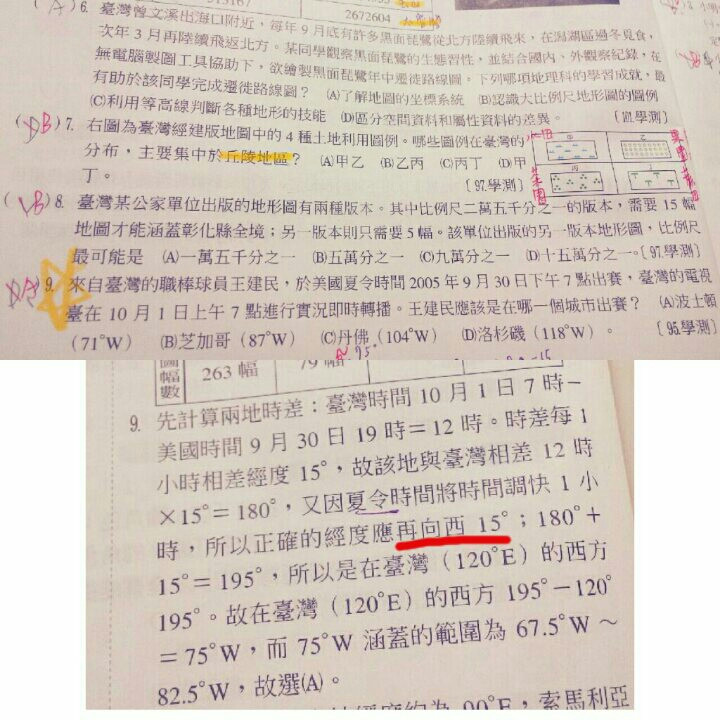 2672604
(A) 6. 臺灣曾文溪出海口附近，每年9月底有許多黑面琵鷺從北方陸續飛來，在潟湖區過冬覓食，
次年3月再陸續飛返北方。某同學觀察黑面琵鷺的生態習性，並結合國內、外觀察紀錄，在
無電腦製圖工具協助下，欲繪製黑面琵鷺年中遷徙路線圖。下列哪項地理科的學習成就，最
有助於該同學完成遷徙路線圖？ (A)了解地圖的坐標系統 (B)認識大比例尺地形圖的圖例
(C)利用等高線判斷各種地形的技能 (D)區分空間資料和屬性資料的差異。
(B) 7. 右圖為臺灣經建版地圖中的4種土地利用圖例。哪些圖例在臺灣的
分布，主要集中於丘陵地區？ (A)甲乙 (B)乙丙 (C)丙丁 (D)甲
丁。 〔97.學測〕
(B) 8. 臺灣某公家單位出版的地形圖有兩種版本。其中比例尺二萬五千分之一的版本，需要15幅
地圖才能涵蓋彰化縣全境；另一版本則只需要5幅。該單位出版的另一版本地形圖，比例尺
最可能是 (A)一萬五千分之一 (B)五萬分之一 (C)九萬分之一 (D)十五萬分之一。〔97.學測〕
9. 來自臺灣的職棒球員王建民，於美國夏令時間2005年9月30日下午7點出賽，臺灣的電視
臺在10月1日上午7點進行實況即時轉播。王建民應該是在哪一個城市出賽？ (A)波士頓
(71°W) (B)芝加哥 (87°W) (C)丹佛 (104°W) (D)洛杉磯 (118°W)。 〔95.學測〕
圖幅數 263幅 79幅
9. 先計算兩地時差：臺灣時間10月1日7時－
美國時間9月30日19時＝12時。時差每1
小時相差經度15°，故該地與臺灣相差12時
×15°＝180°，又因夏令時間將時間調快1小
時，所以正確的經度應再向西15°；180°＋
15°＝195°，所以是在臺灣（120°E）的西方
195°。故在臺灣（120°E）的西方195°－120°
＝75°W，而75°W涵蓋的範圍為67.5°W～
82.5°W，故選(A)。
90°E，索馬利亞